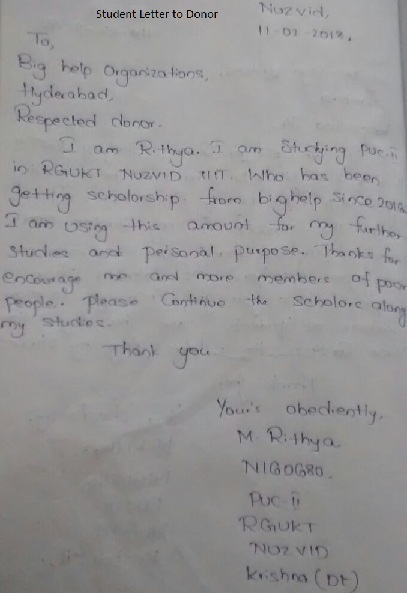 Student Letter to Donor
Nuzvid,
11-01-2018,
To,
Big help Organizations,
Hyderabad,
Respected donor.
I am Rithya. I am Studying Puc-ii
in RGUKT NUZVID IIIT. Who has been
getting scholorship from bighelp since 2016.
I am using this amount for my further
studies and personal purpose. Thanks for
encourage me and more members of poor
people. please Continue the scholors along
my studies.
Thank you
Your's obediently,
M. Rithya
N160680.
PUC-ii
RGUKT
NUZVID
Krishna (Dt)